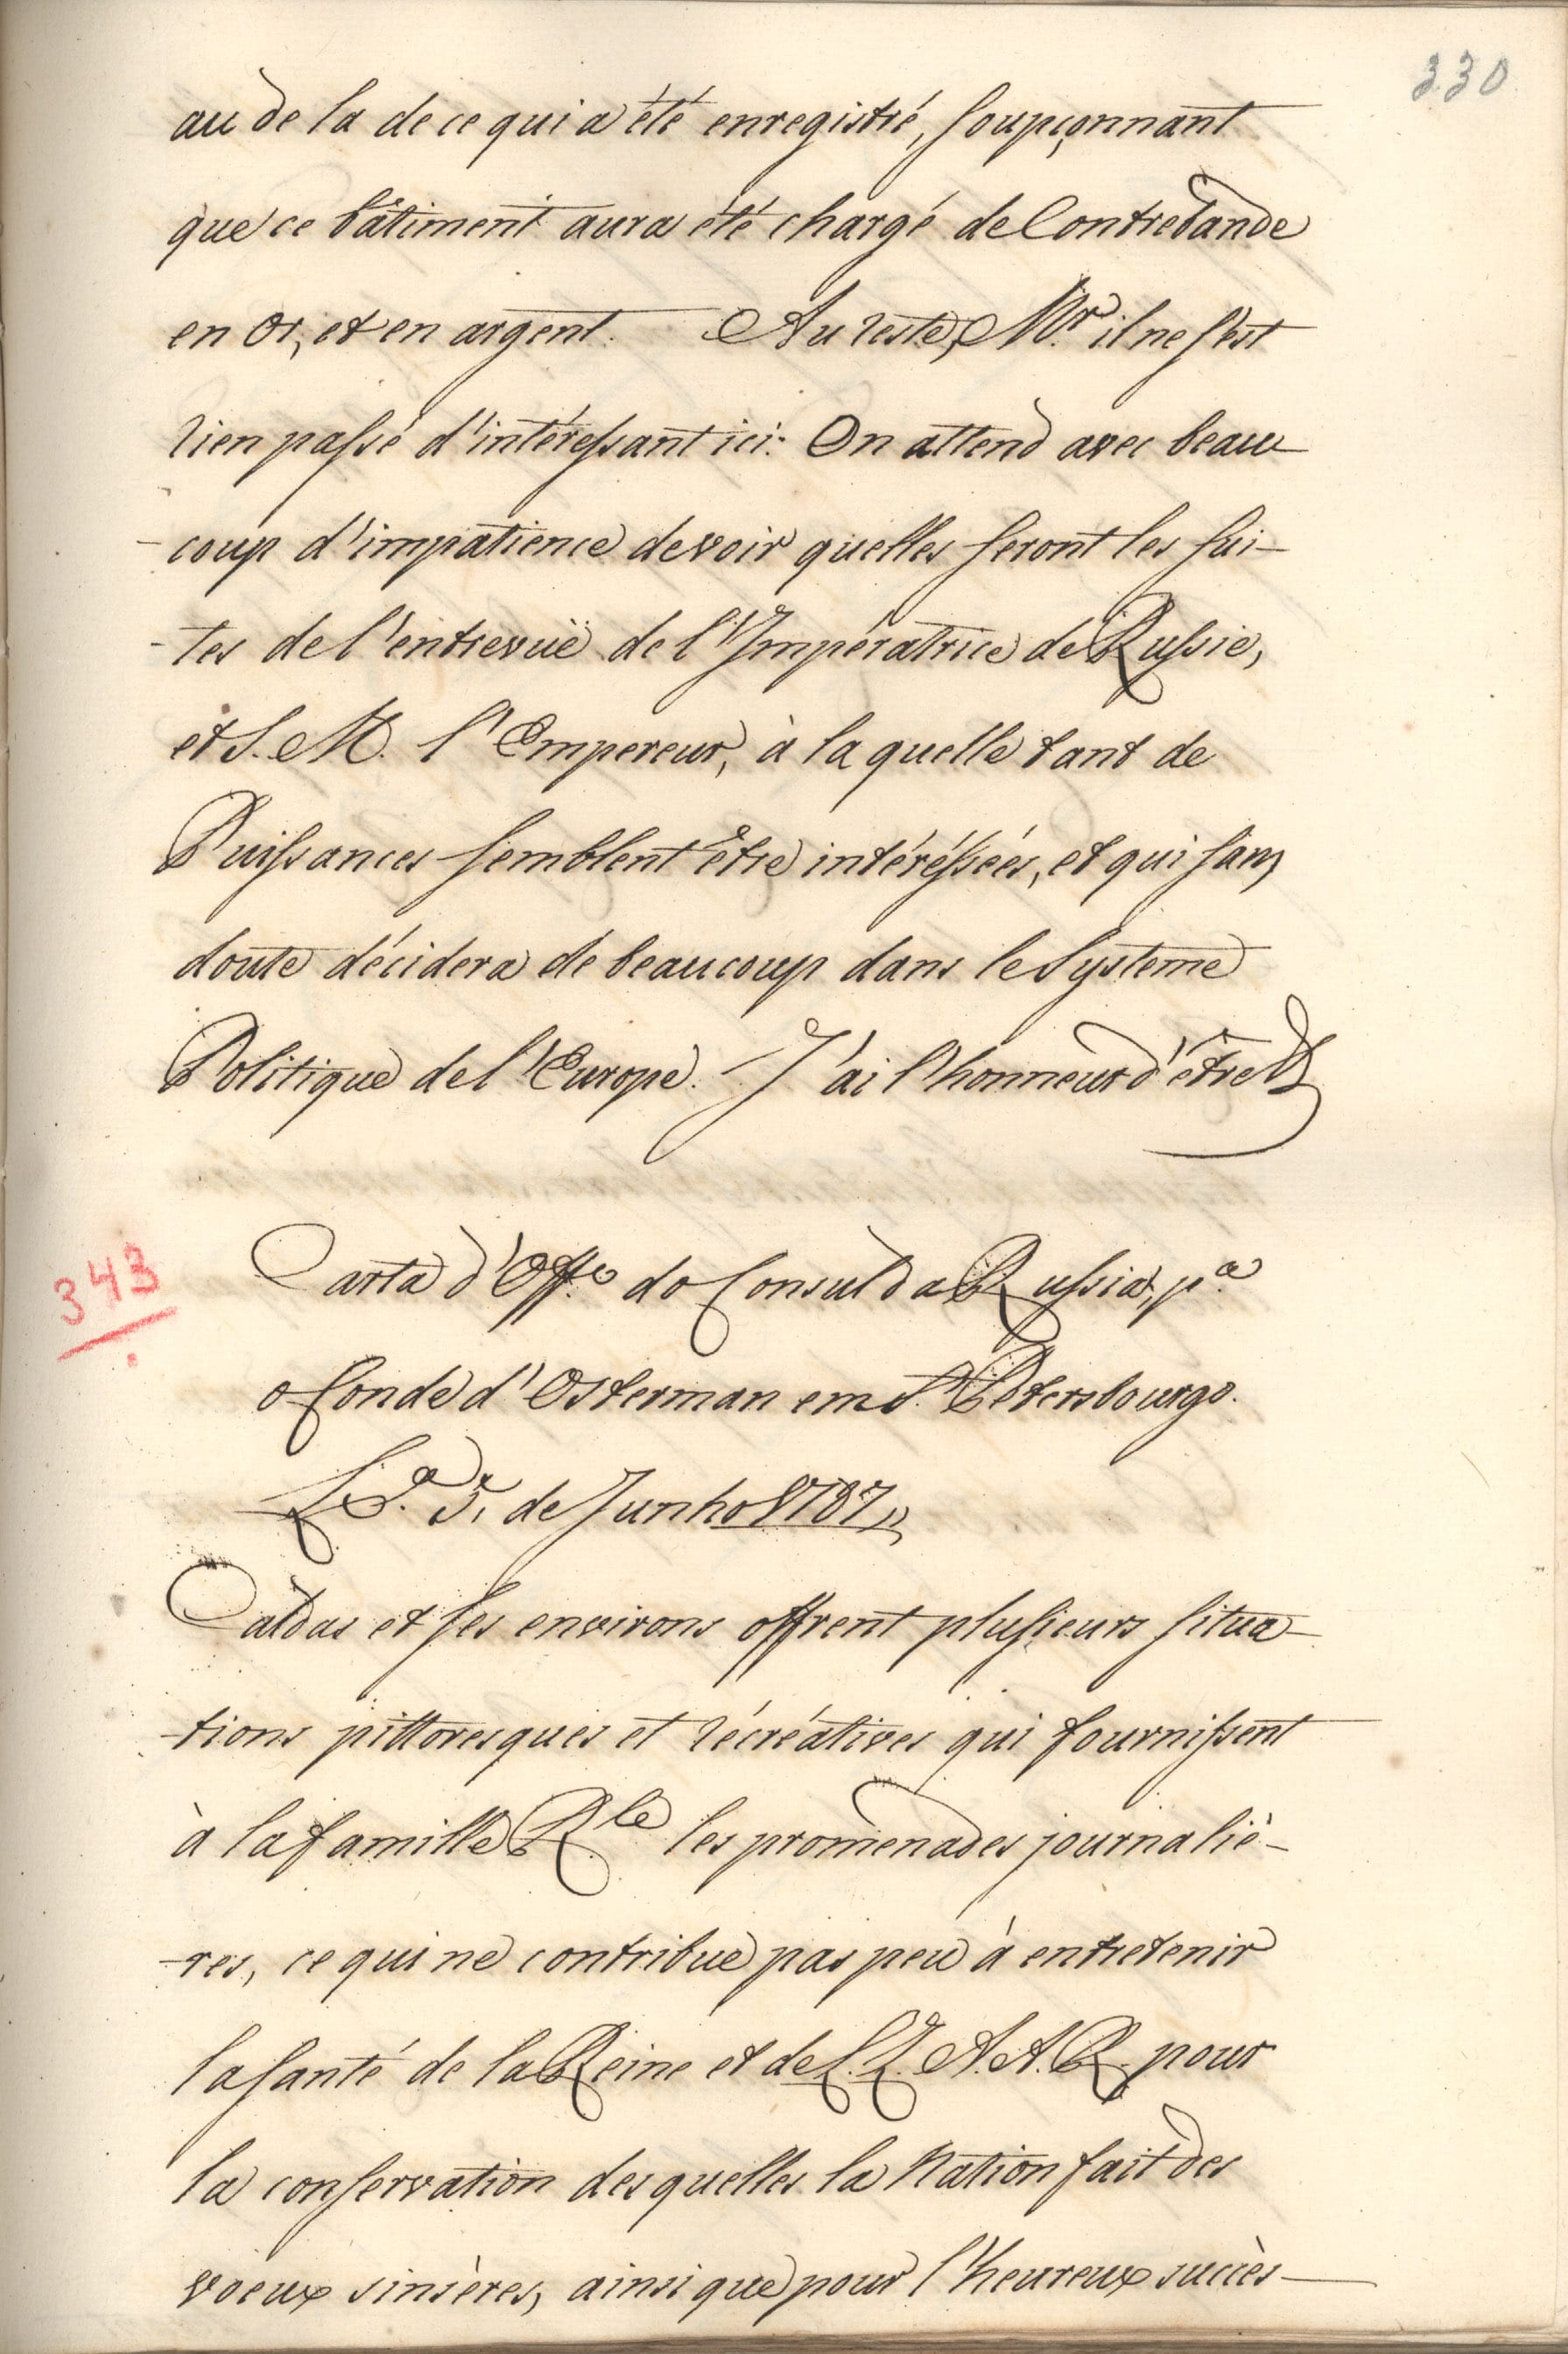 330
au de la de ce qui a été enregistré, soupçonnant
que ce bâtiment aura été chargé de Contrebande
en or, et en argent. Au reste, Mr. il ne s'est
rien passé d'intéressant ici. On attend avec beau
-coup d'impatience de voir quelles seront les sui-
-tes de l'entrevuë de l'Impératrice de Russie,
et S. M. l'Empereur, à la quelle tant de
Puissances semblent être intéréssées, et qui sans
doute décidera de beaucoup dans le Systeme
Politique de l'Europe. J'ai l'honneur d'être &
343
Carta d'Offo. do Consul da Russia, pa.
o Conde d'Osterman em S. Petersbourgo.
Lxa. 5, de Junho 1787,,
Caldas et ses environs offrent plusieurs situa-
-tions pittoresques et récréatives qui fournissent
à la famille R.le les promenades journaliè-
-res, ce qui ne contribue pas peu à entretenir
la santé de la Reine et de L. L. A. A. R. pour
la conservation desquelles la Nation fait des
voeux sinsères, ainsi que pour l'heureux succès